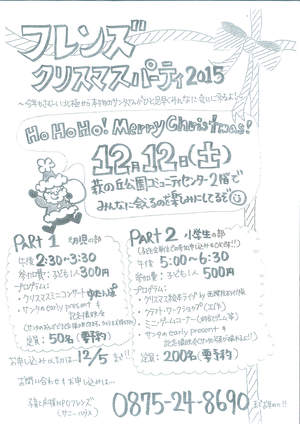 フレンズ
クリスマスパーティ2015
Ho Ho Ho! Merry Christmas!
12月12日(土)
萩の丘公園コミュニティセンター2階で
みんなに会えるのを楽しみにしてるぞ
Part 1 幼児の部
午後 2:30~3:30
参加費:子ども1人 300円
プログラム:
・クリスマスミニコンサート
・サンタのearly present &
記念撮影会
定員:50名(要予約)
Part 2 小学生の部
午後 5:00~6:30
参加費:子ども1人 500円
プログラム:
・クリスマス絵本ライブ by
・クラフト・ワークショップ
・ミニゲームコーナー
・サンタのearly present &
記念撮影会
定員:200名(要予約)
お申し込み〆切は… 12/5まで!!
お問い合わせ&お申し込みは…
NPOフレンズ
(サニーハウス)
0875-24-8690